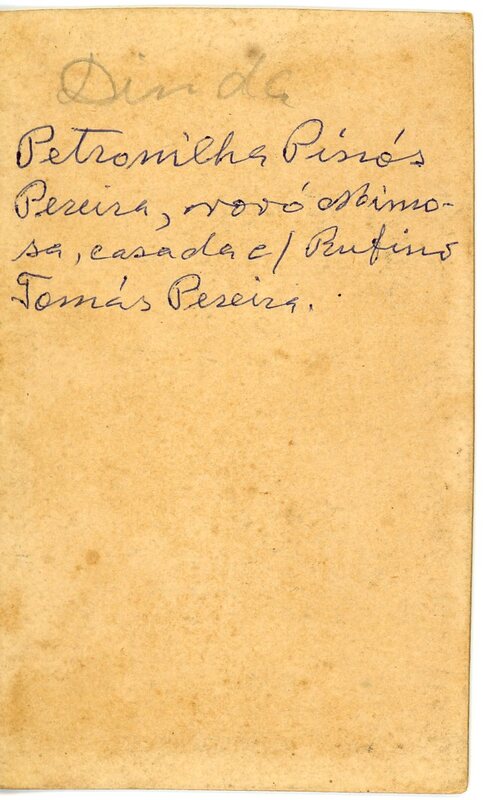 Dinda
Petronilha Pírrós
Pereira, vovó Mimo-
sa, casada c/ Rufino
Tomás Pereira.